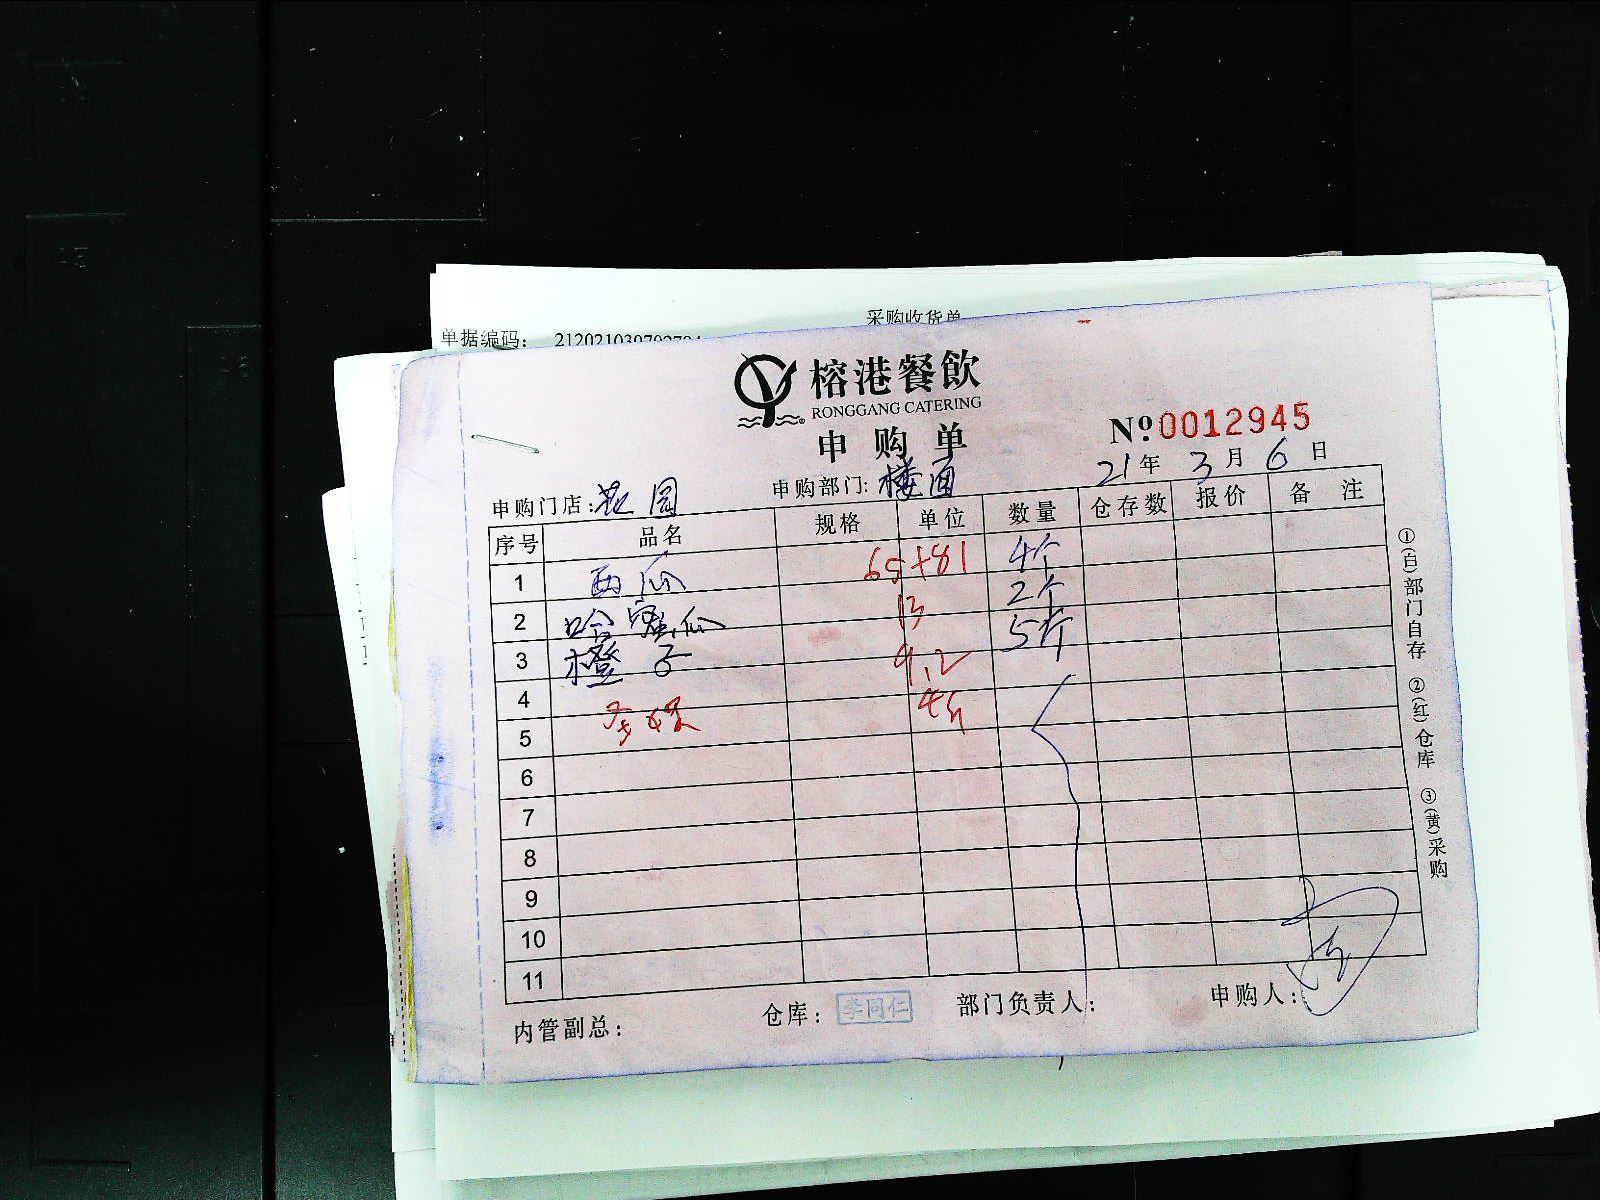 采购收货单
单据编码： 212021030702704
榕港餐飲
RONGGANG CATERING
申购单
№0012945
21年 3月 6日
申购门店:花园 申购部门:楼面
序号 品名 规格 单位 数量 仓存数 报价 备 注
1 西瓜 65+81 4个
2 哈密瓜 13 2个
3 橙子 9.2 5斤
4
5
6
7
8
9
10
11
①(白)部门自存 ②(红)仓库 ③(黄)采购
内管副总： 仓库： 李同仁 部门负责人： 申购人：